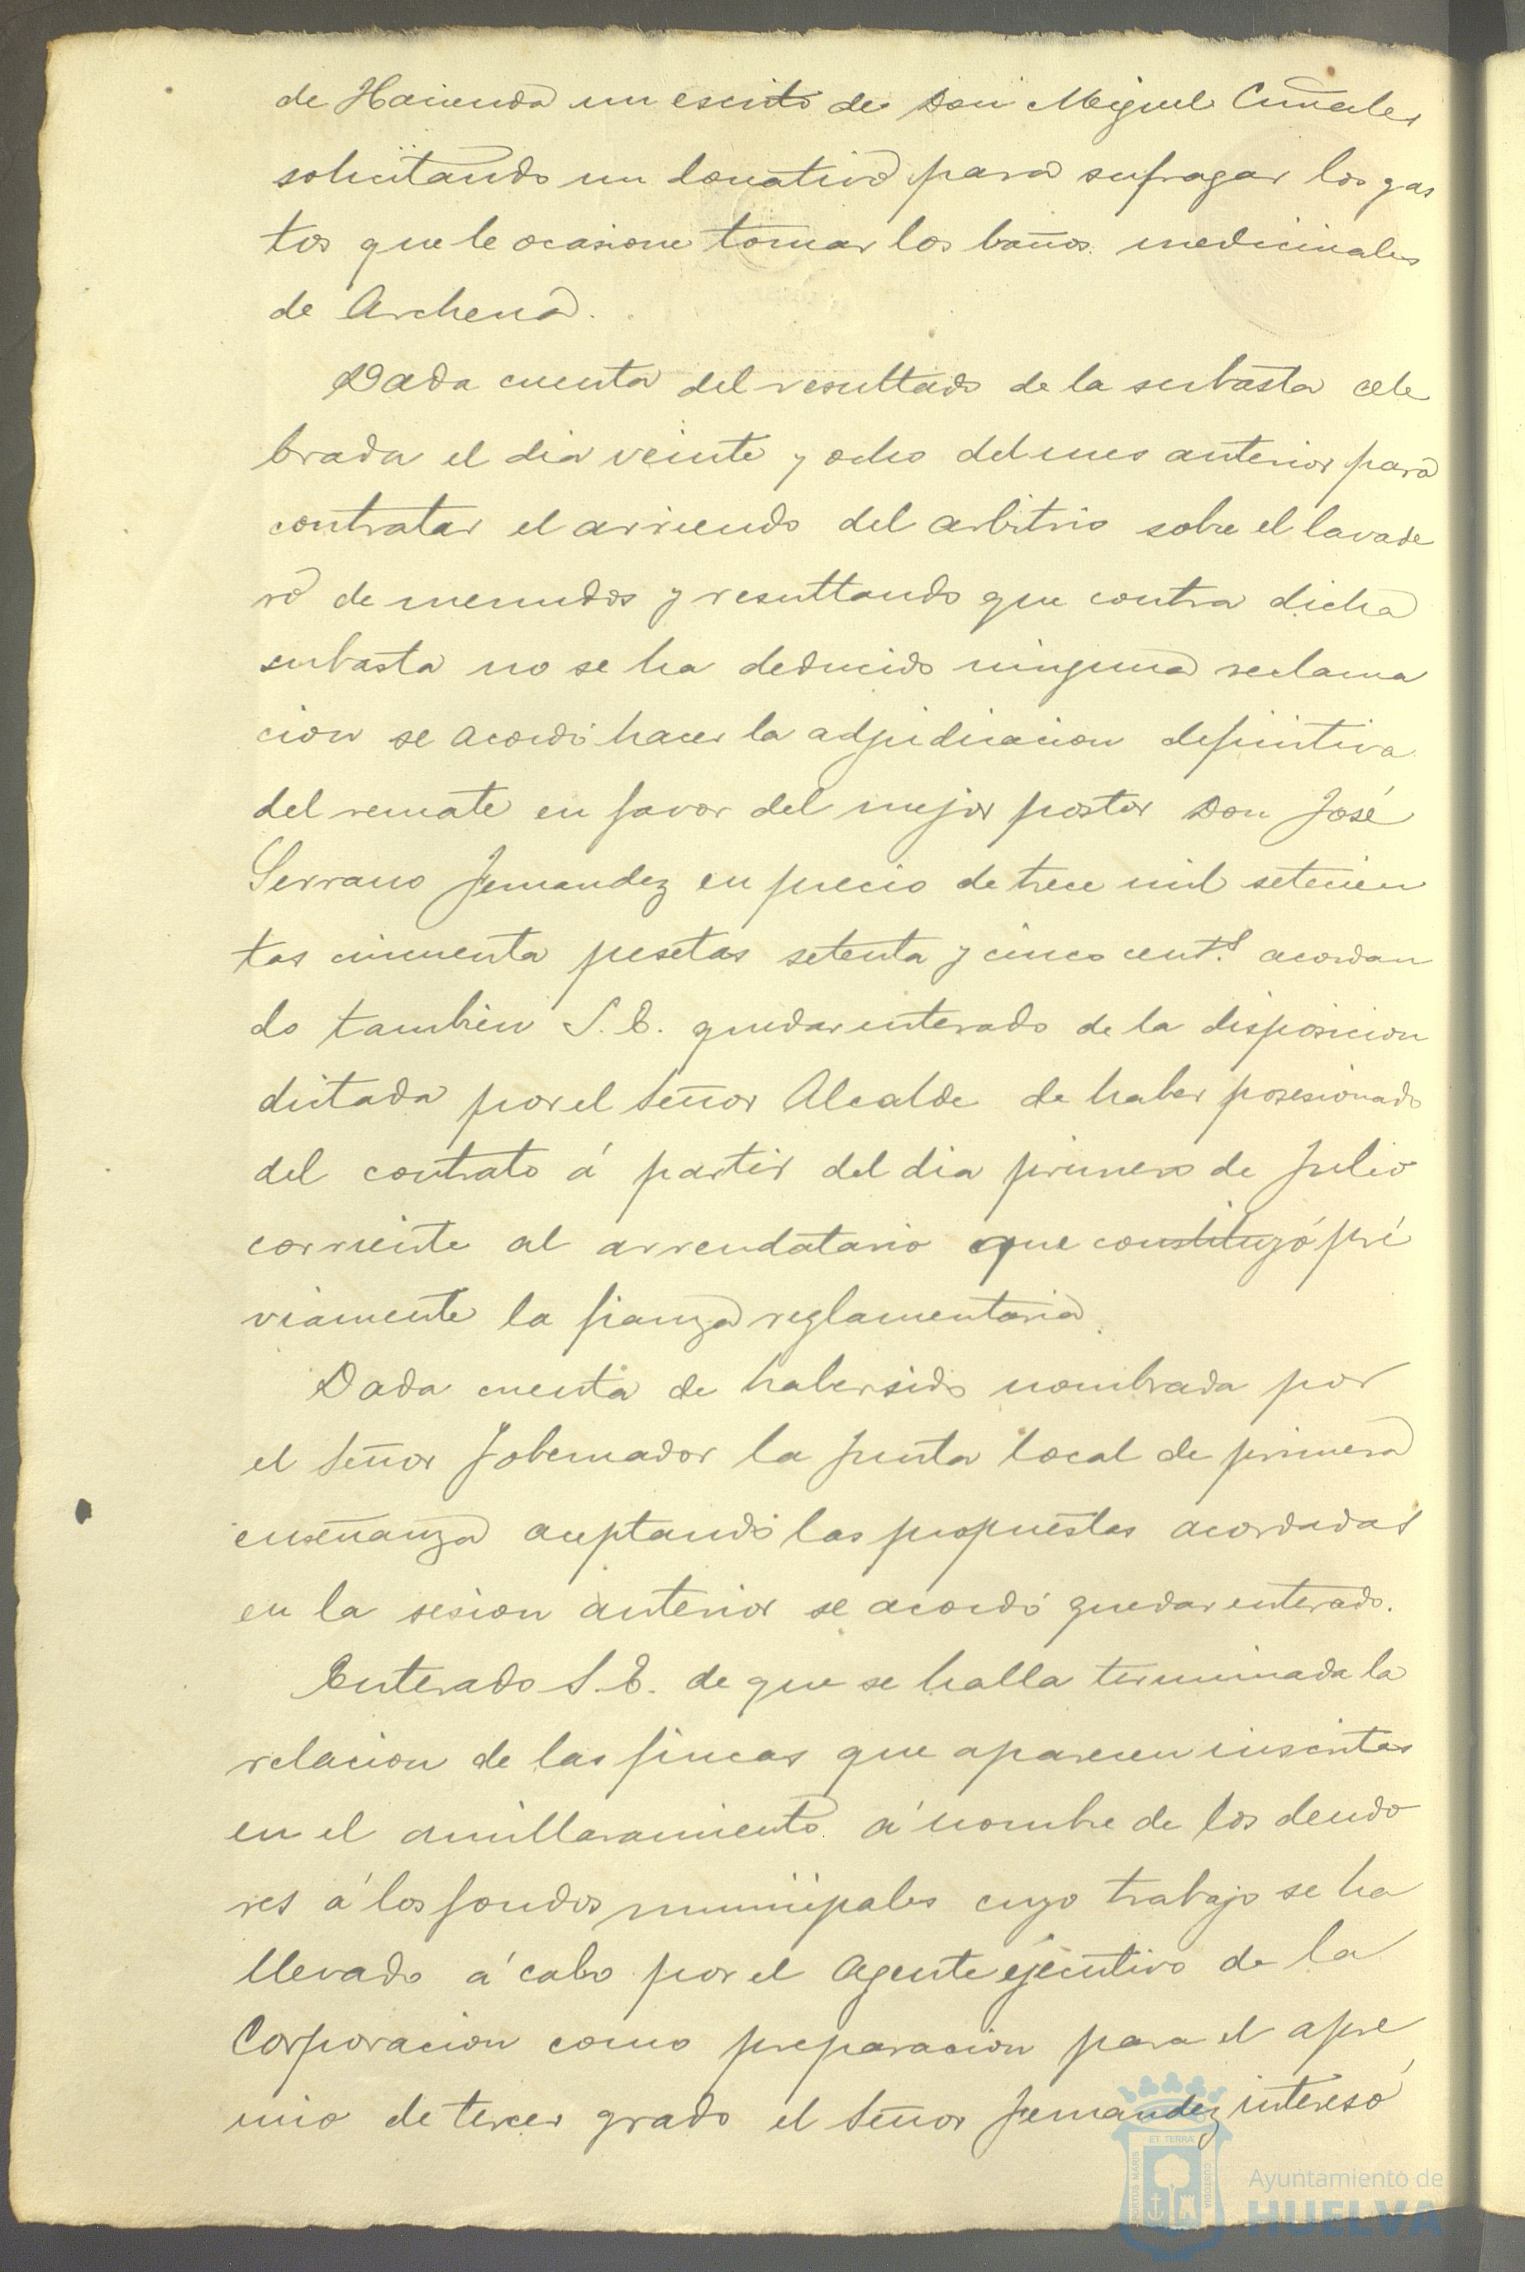 de Hacienda un escrito de Don Miguel
solicitando un donativo para sufragar los gas
tos que le ocasione tomar los baños medicinales
de Archena.
Dada cuenta del resultado de la subasta cele
brada el dia veinte y ocho del mes anterior para
contratar el arriendo del arbitrio sobre el lavade
ro de menudos y resultando que contra dicha
subasta no se ha deducido ninguna reclama
cion se acordó hacer la adjudicacion definitiva
del remate en favor del mejor postor Don José
Serrano Fernandez en precio de trece mil setecien
tas cincuenta pesetas setenta y cinco cents. acordan
do tambien S.E. quedar enterado de la disposicion
dictada por el Señor Alcalde de haber posesionado
del contrato á partir del dia primero de Julio
corriente al arrendatario que constituyó pré
viamente la fianza reglamentaria.
Dada cuenta de haber sido nombrada por
el Señor Gobernador la Junta local de primera
enseñanza aceptando las propuestas acordadas
en la sesion anterior se acordó quedar enterado.
Enterado S.E. de que se halla terminada la
relacion de las fincas que aparecen inscritas
en el amillaramiento á nombre de los deudo
res á los fondos municipales cuyo trabajo se ha
llevado á cabo por el Agente ejecutivo de la
Corporacion como preparacion para el apre
mio de tercer grado el Señor Fernandez interesó
PORTUS MARIS
ET TERRÆ
CUSTODIA
Ayuntamiento de
HUELVA